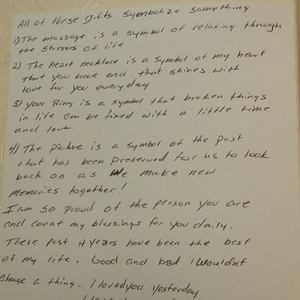 All of these Gifts Symbolize something
1) The massage is a symbol of relaxing through
the stresses of life
2) The heart necklace is a symbol of my heart
that you have and that shines with
love for you everyday
3) your Ring is a symbol that broken things
in life can be fixed with a little time
and love.
4) The picture is a symbol of the past
that has been preserved for us to look
back on as we make new
memories together!
I am so proud of the person you are
and count my blessings for you daily.
These past 4 years have been the best
of my life. Good and bad I wouldn't
change a thing. I loved you yesterday